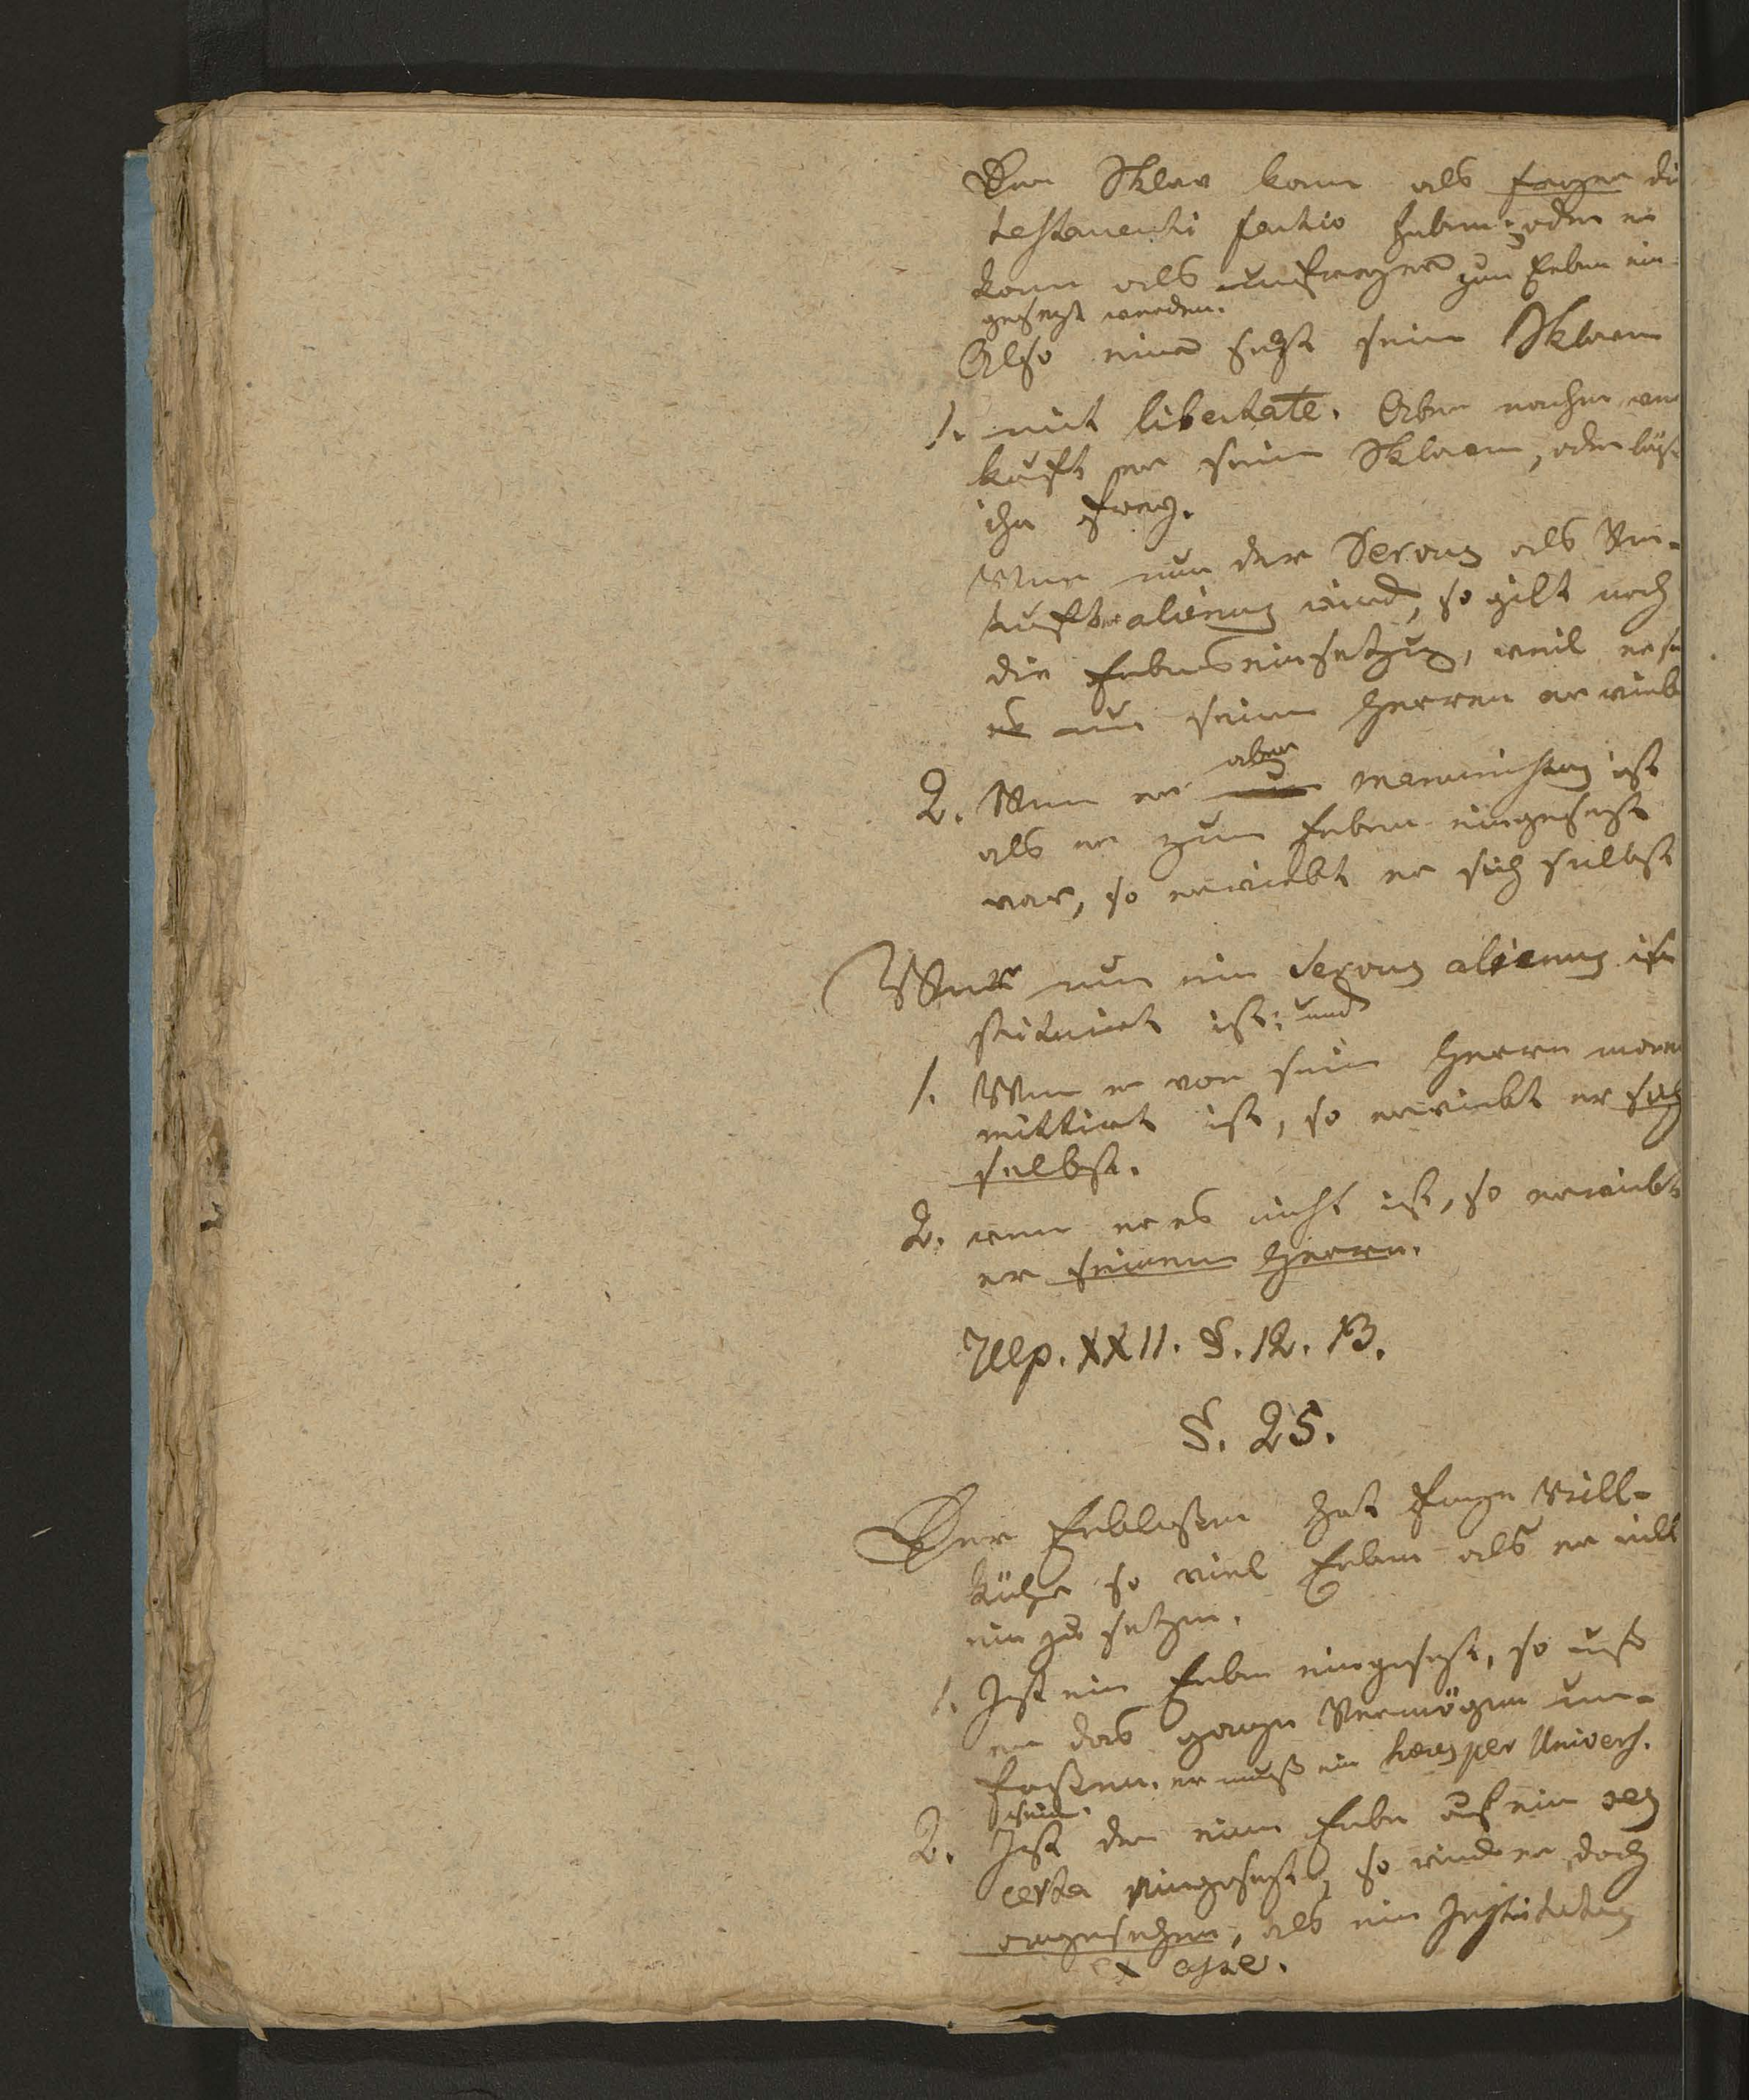 Der Sklav kann als freyer di
testamenti factio haben; oder er
kann als unfreyer zum Erben ein
gesezt werden.
Also einer sezt seine Sklaven
1. mit libertate. Aber nachher ver
kauft er seine Sklaven, oder läßt
ihn frey.
Wenn nun der Servus als Ver-
kaufter alienus wird, so gilt noch
die Erbeseinsetzung, weil er
es nur seinem Herren erwirbt
2. Wenn er aber manumissus ist
als er zum Erben eingesezt
war, so erwirbt er sich selbst
Wenn nun ein Servus alienus in
stituirt ist; und
1. Wenn er von seinem Herrn manu
mittirt ist, so erwirbt er sich
selbst.
2. wenn er es nicht ist, so erwirbt
er seinem Herrn.
Ulp. XXII. §. 12. 13.
§. 25.
Der Erblaßer hat freye Will-
kühr so viel Erben als er will
ein zu setzen.
1. Ist ein Erbe eingesezt, so muß
er das ganze Vermögen um-
faßen. er muß ein haeres per Univers.
sein.
2. Ist der eine Erbe auf ein res
certa eingesezt, so wird er doch
angesehen, als ein Institutus
ex asse.